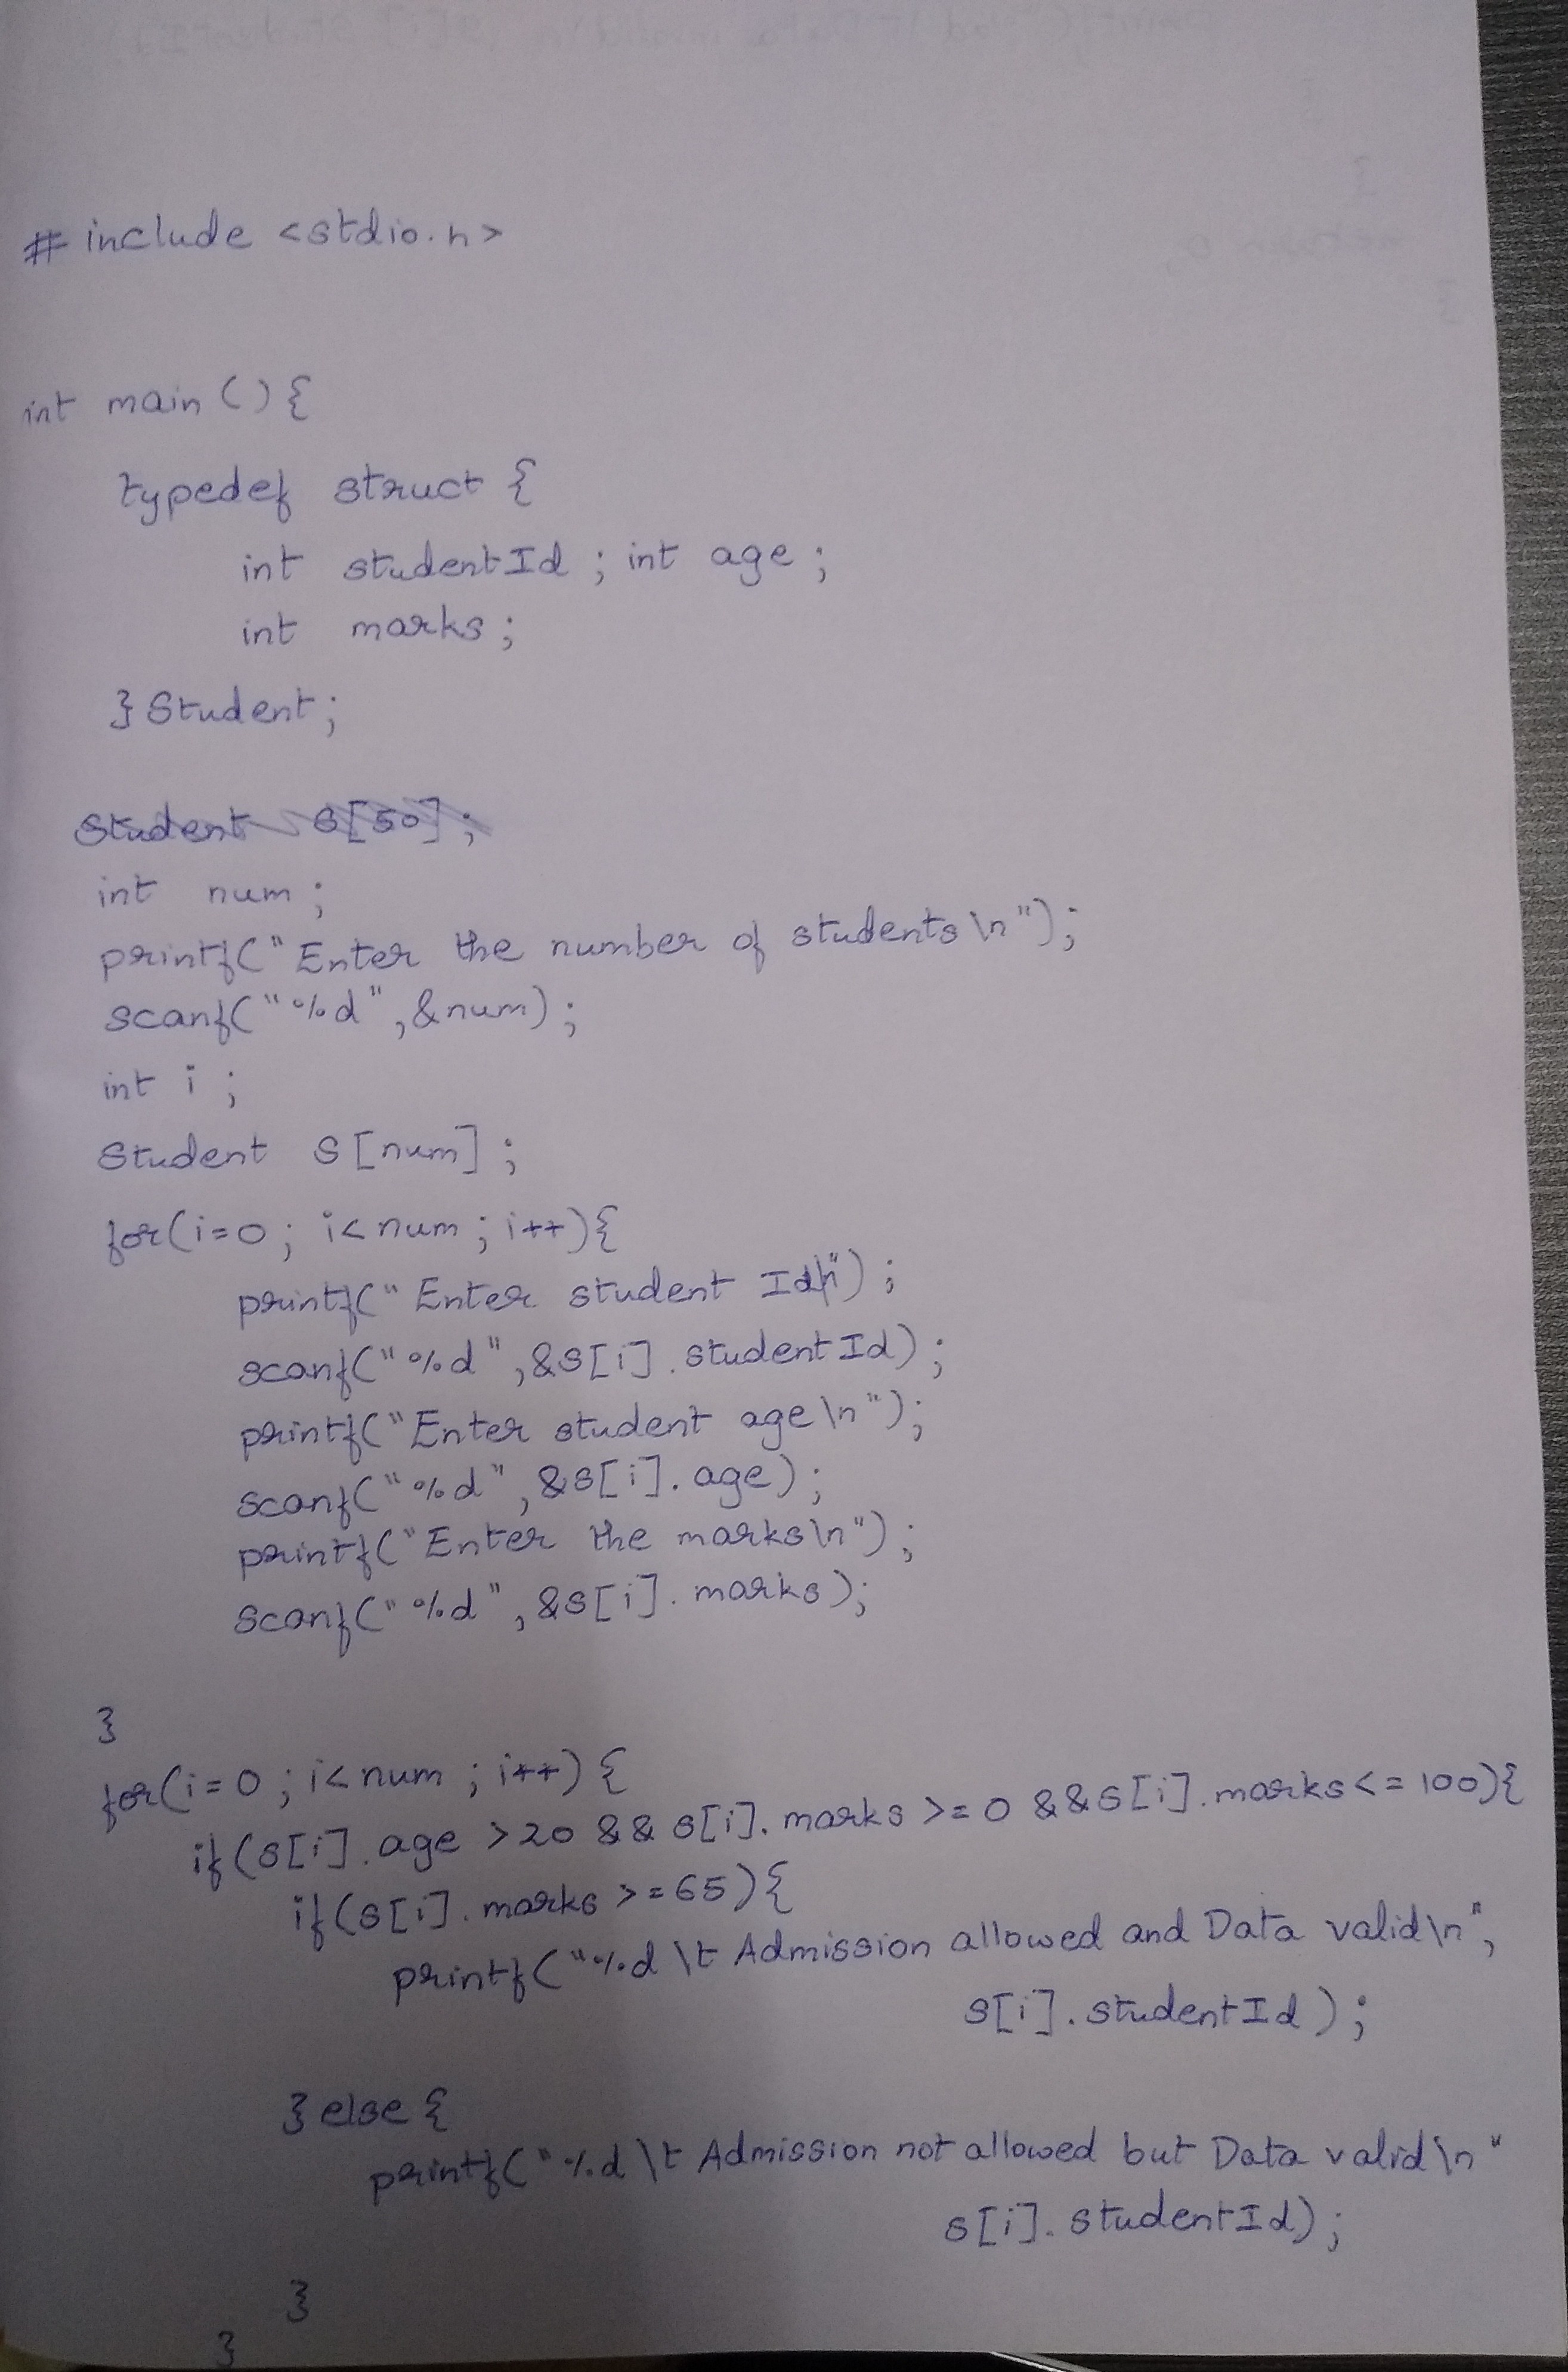 # include <stdio.h>
int main () {
typedef struct {
int studentId ; int age ;
int marks ;
} Student ;
Student s[50] ;
int num ;
printf(" Enter the number of students \n ") ;
scanf(" %d " , &num) ;
int i ;
Student s [num] ;
for(i=0 ; i< num ; i++) {
printf(" Enter student Id\n") ;
scanf(" %d " , &s[i] . studentId) ;
printf("Enter student age \n ") ;
scanf(" %d " , &s[i] . age) ;
printf(" Enter the marks \n") ;
scanf(" %d " , &s[i] . marks) ;
}
for(i = 0 ; i< num ; i++) {
if(s[i] . age >20 && s[i] . marks >= 0 && s[i] . marks <= 100) {
if(s[i] . marks >= 65) {
printf("%d \t Admission allowed and Data valid \n" ,
s[i] . studentId ) ;
} else {
printf(" %d \t Admission not allowed but Data valid \n "
s[i] . studentId) ;
}
}